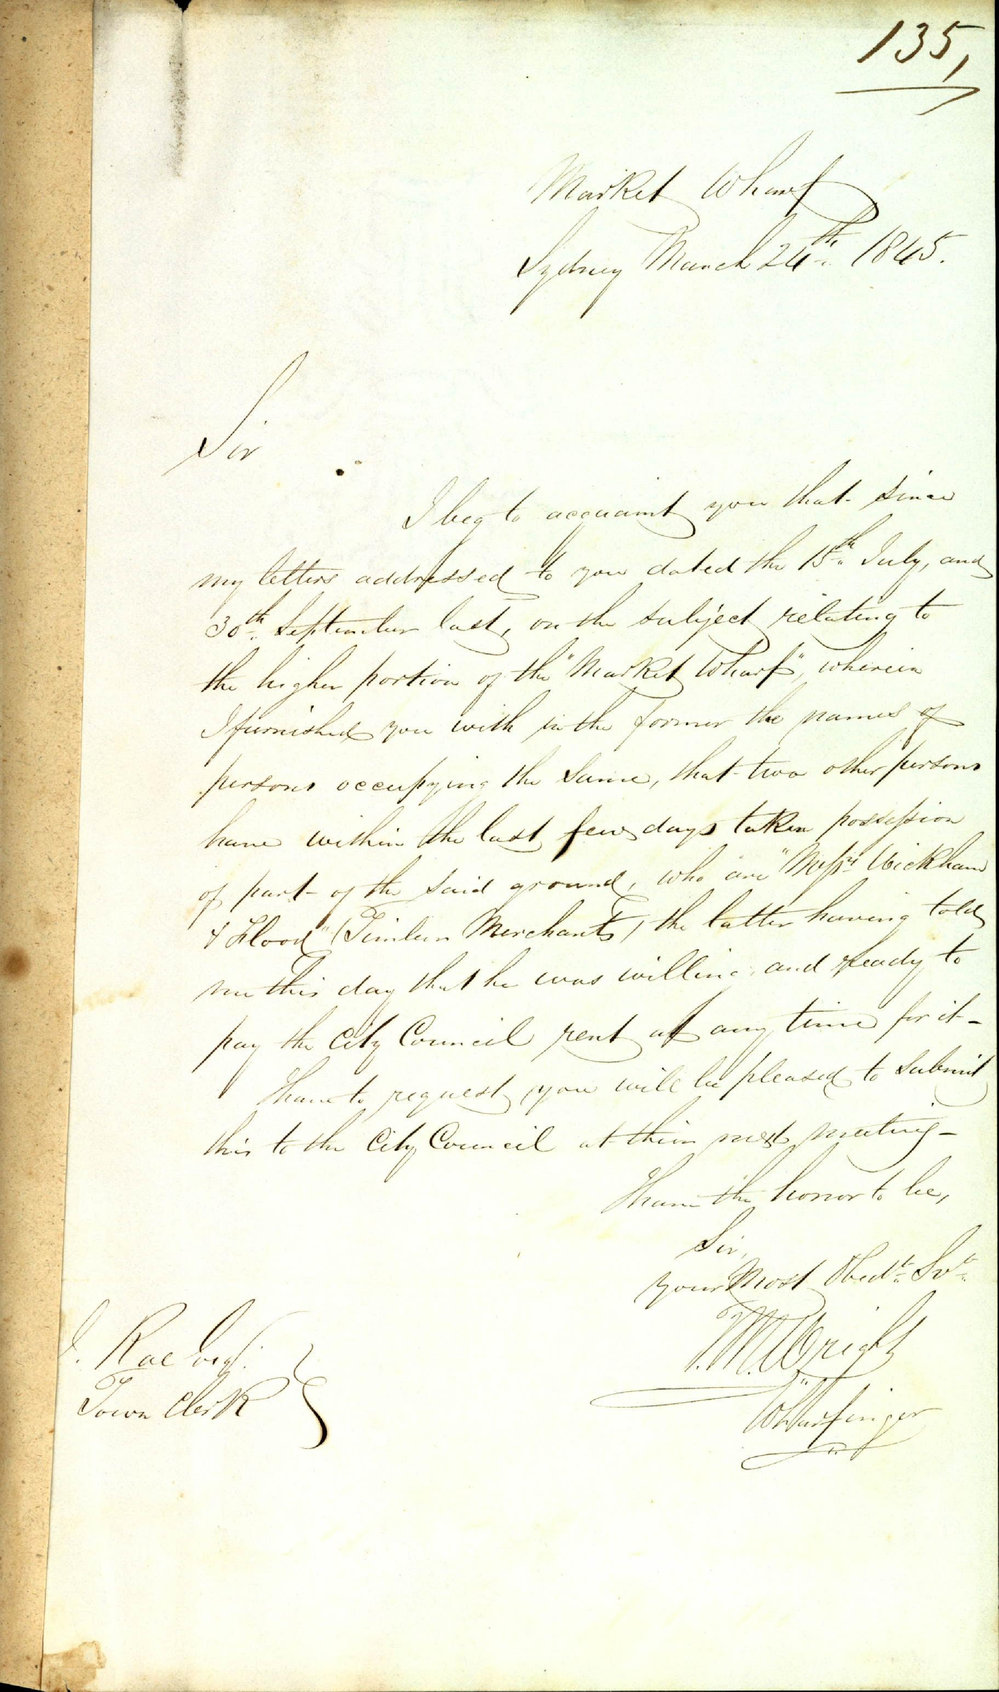 135,
Market Wharf
Sydney March 24th. 1845.
Sir
I beg to acquaint you that since
my letters addressed to you dated the 15th. July, and
30th. September last, on the subject relating to
the higher portion of the "Market Wharf", wherein
I furnished you with in the former the names of
persons occupying the same, that two other persons
have within the last few days taken possession
of part of the said ground, who are "Messrs Wickham
& Flood" (Timber Merchants) the latter having told
me this day that he was willing and ready to
pay the City Council rent at any time for it –
I have to request you will be pleased to submit
this to the City Council at their next meeting –
I have the honor to be,
Sir,
Your Most Obedt. Svt.
T. M. Wright
Wharfinger
J. Rae Esq:
Town Clerk